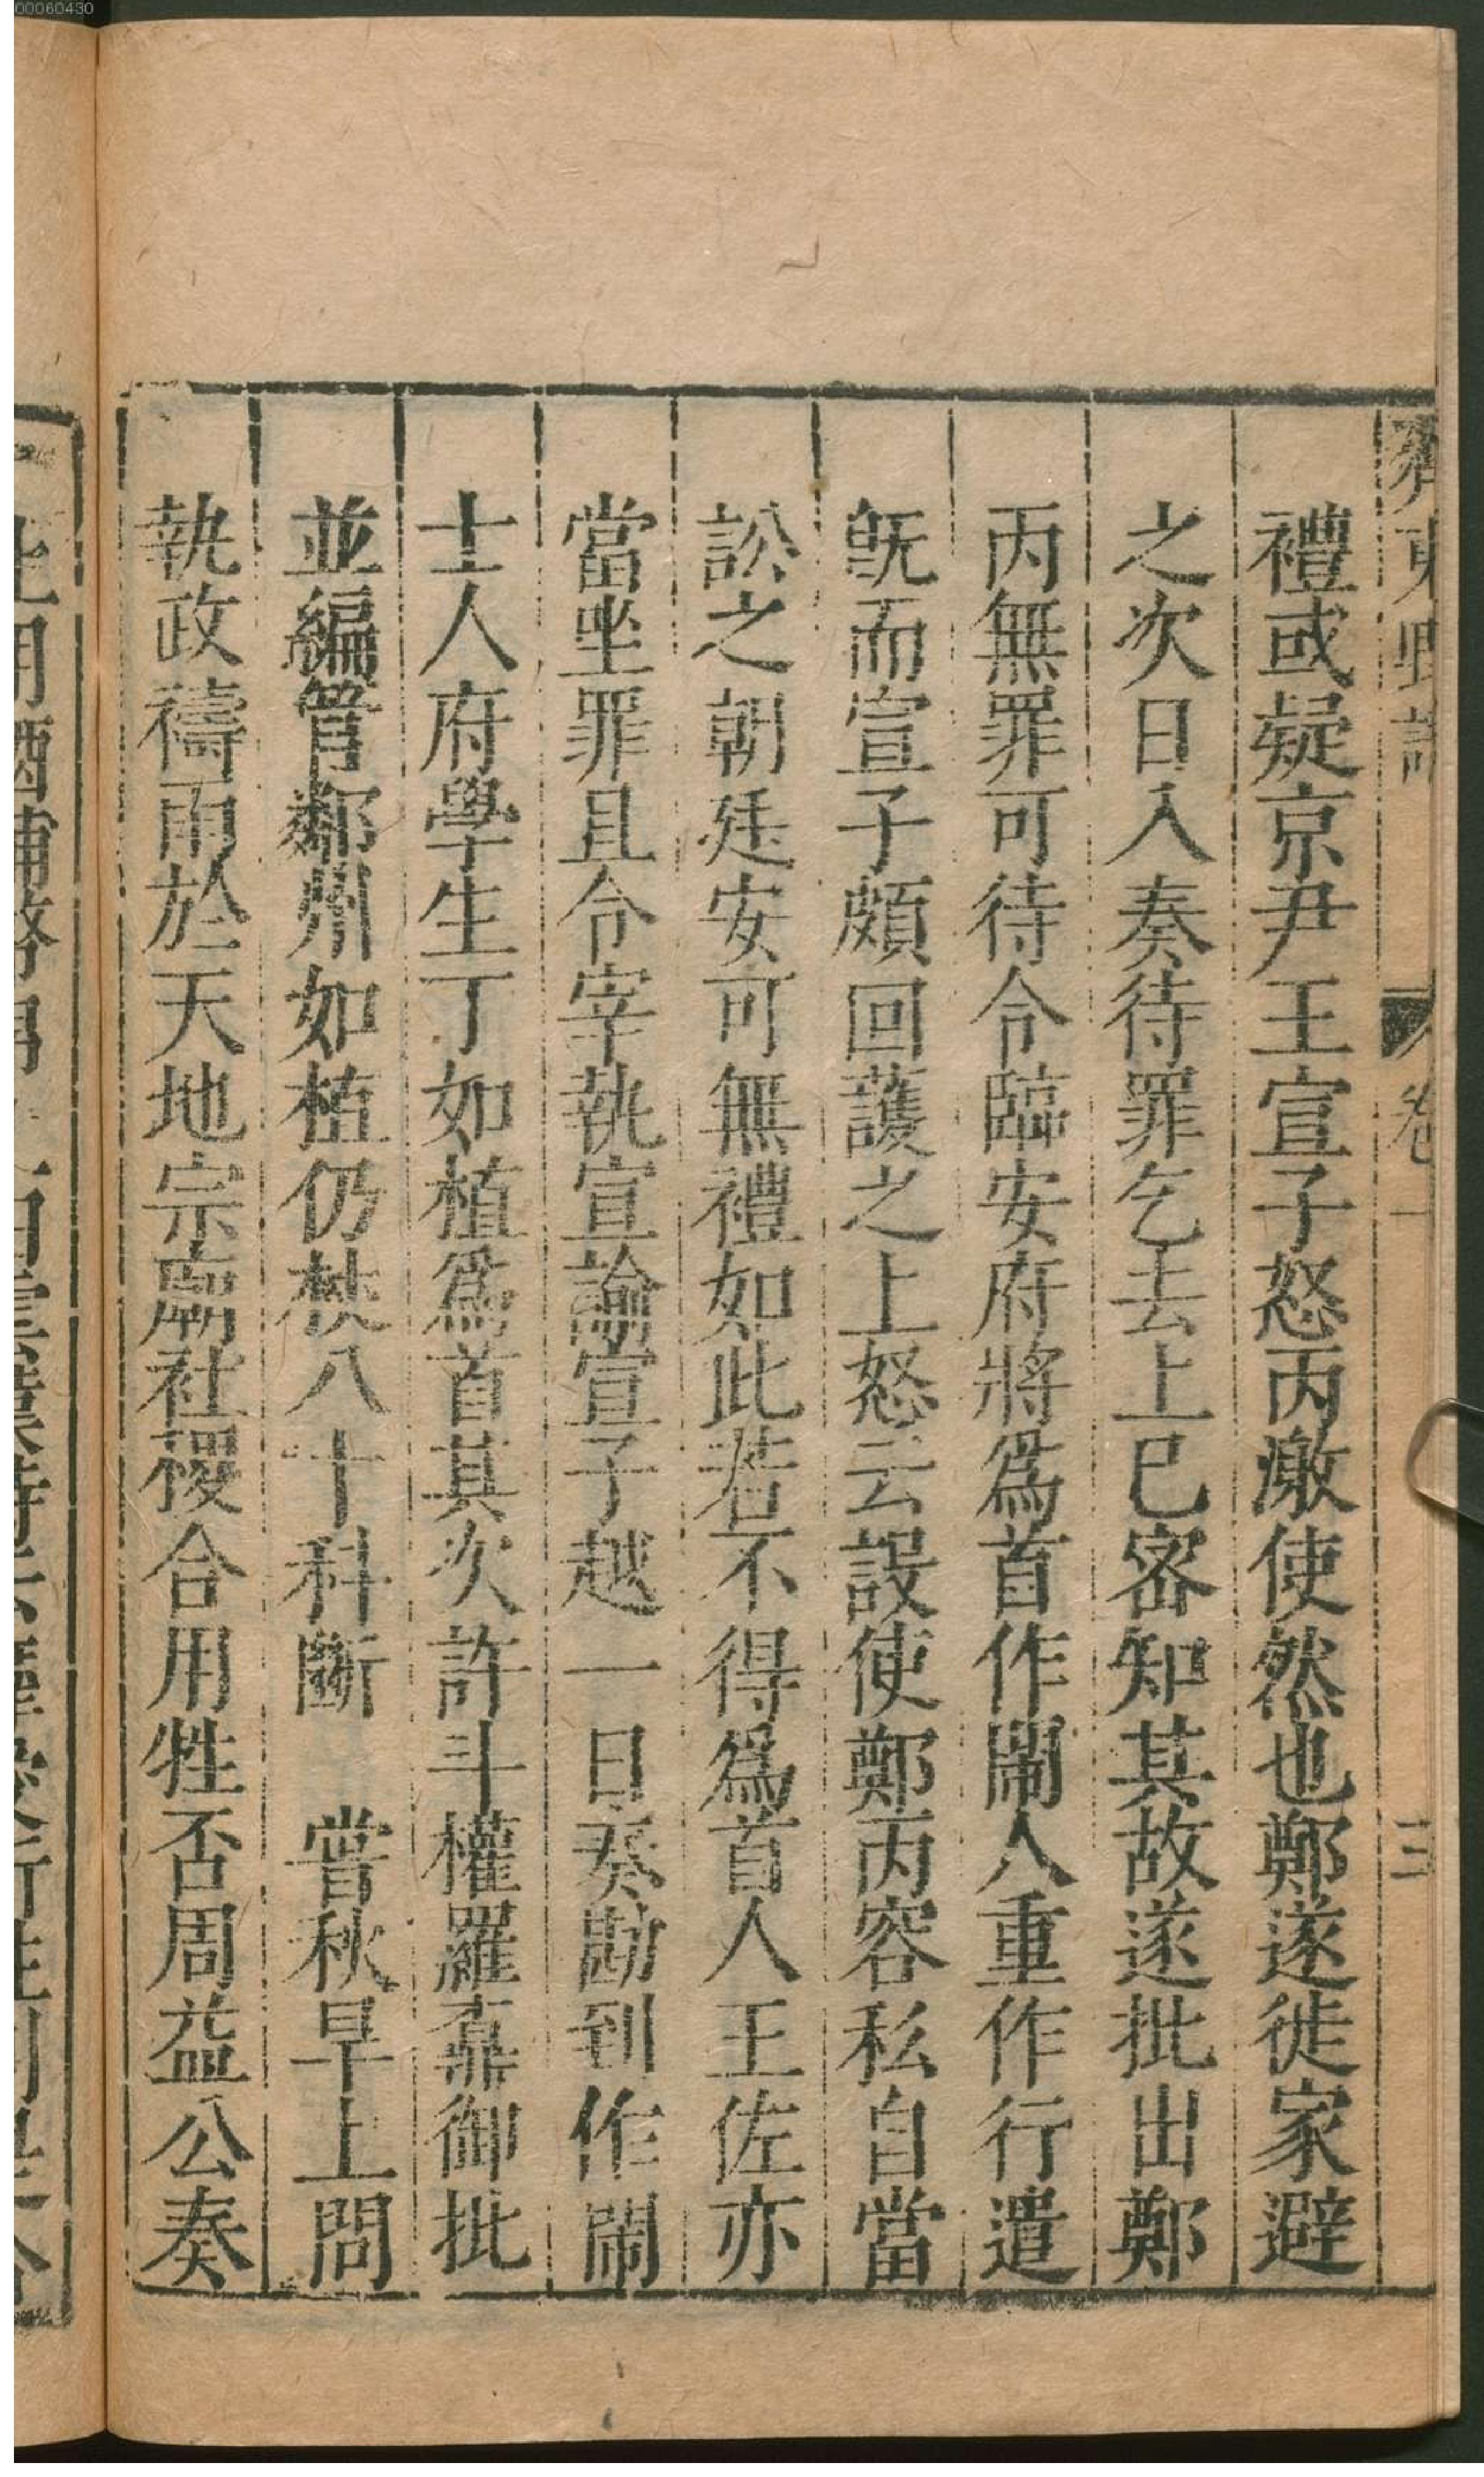 00060430
齊東野語 卷一 三
禮或疑京尹王宣子怒丙激使然也鄭遂徙家避
之次日入奏待罪乞去上已密知其故遂批出鄭
丙無罪可待令臨安府將爲首作鬧人重作行遣
旣而宣子頗回護之上怒云設使鄭丙容私自當
訟之朝廷安可無禮如此若不得爲首人王佐亦
當坐罪且令宰執宣諭宣子越一日奏勘到作鬧
士人府學生丁如植爲首其次許斗權羅鼐御批
並編管鄰州如植仍杖八十科斷 嘗秋旱上問
執政禱雨於天地宗廟社稷合用牲否周益公奏